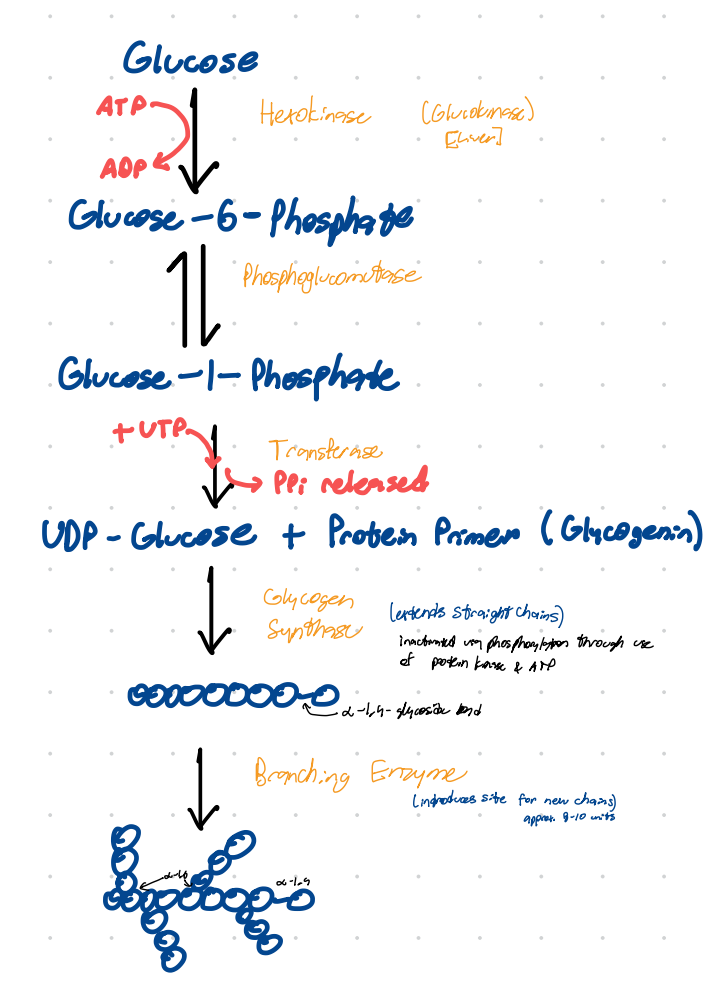 Glucose
ATP
Hexokinase (Glucokinase)
[Liver]
ADP
Glucose-6-Phosphate
Phosphoglucomutase
Glucose-1-Phosphate
+ UTP
Transferase
PPi released
UDP-Glucose + Protein Primer (Glycogenin)
Glycogen
Synthase
(extends straight chains)
inactivated via phosphorylation through use
of protein kinase & ATP
α-1,4-glycosidic bond
Branching Enzyme
(introduces site for new chains)
approx. 8-10 units
α-1,6
α-1,4